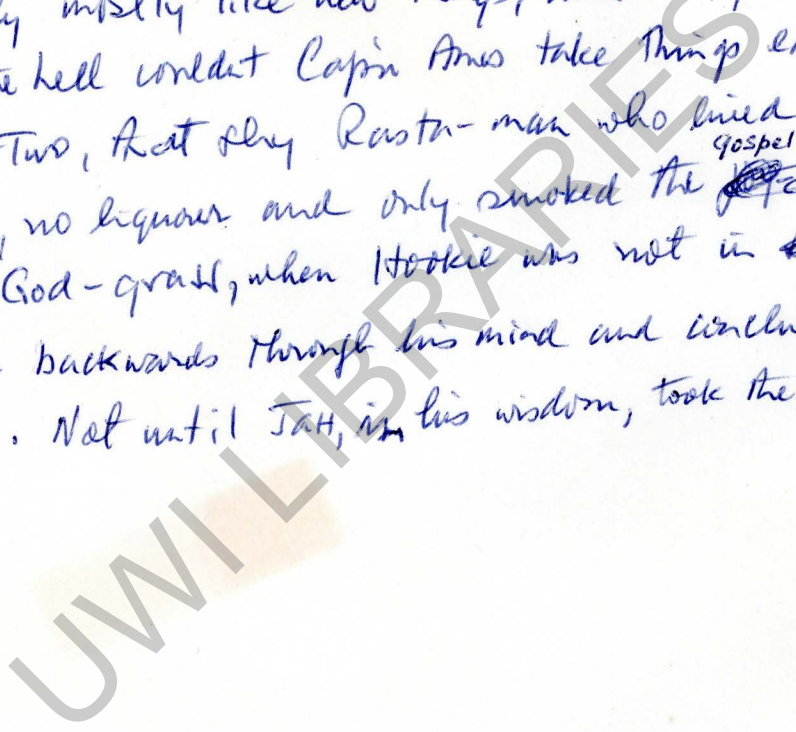 mostly like
hell couldnt Cap'n Ames take Things
Two, that shy Rasta-man who lived
gospel
, no liquour and only smoked the
God-grass, when Hookie was not in
backwards through his mind and conclu
. Not until JaH, in his wisdom, took the
UWI LIBRARIES